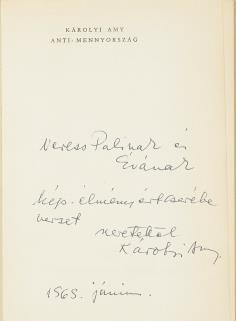 KÁROLYI AMY
ANTI-MENNYORSZÁG
Veress Palinak és
Évának
kép-élményért cserébe
verset
szeretettel
Károlyi Amy
1969. június.